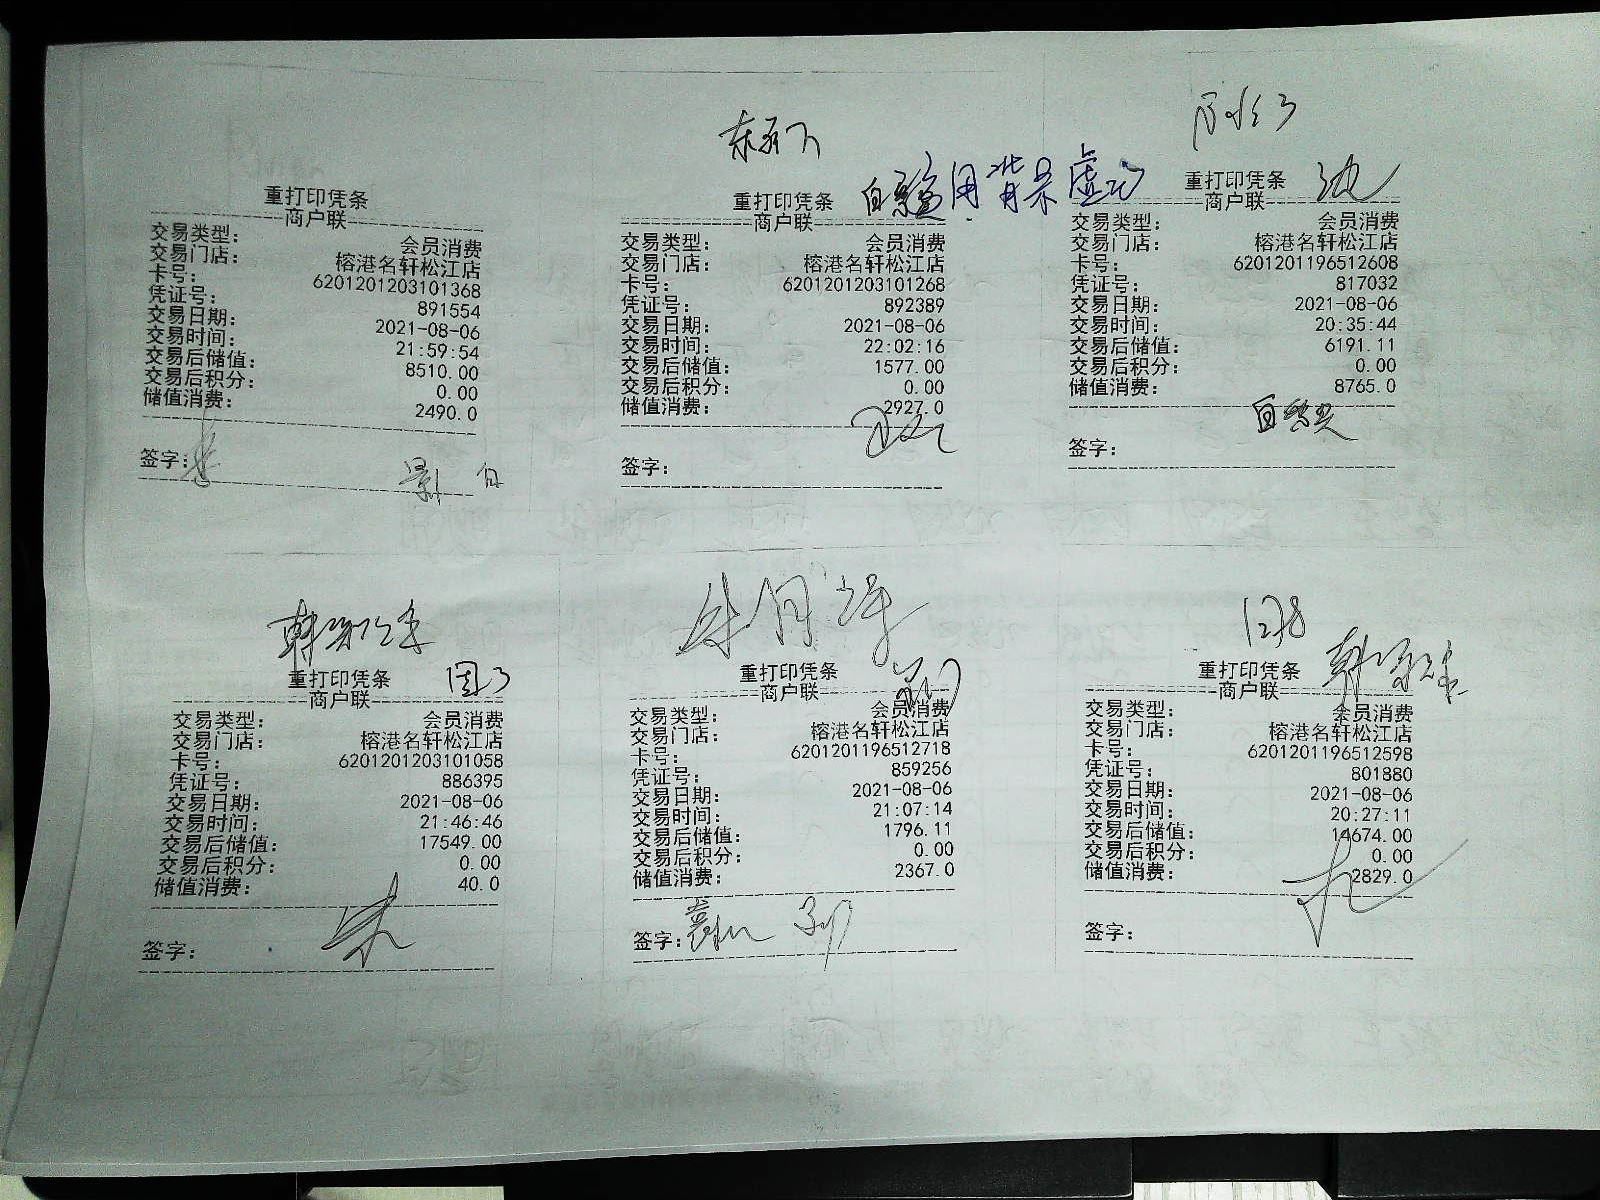 重打印凭条
商户联
交易类型： 会员消费
交易门店： 榕港名轩松江店
卡号： 6201201203101368
凭证号： 891554
交易日期： 2021-08-06
交易时间： 21:59:54
交易后储值： 8510.00
交易后积分： 0.00
储值消费： 2490.0
签字：
重打印凭条
商户联
交易类型： 会员消费
交易门店： 榕港名轩松江店
卡号： 6201201203101268
凭证号： 892389
交易日期： 2021-08-06
交易时间： 22:02:16
交易后储值： 1577.00
交易后积分： 0.00
储值消费： 2927.0
签字：
重打印凭条
商户联
交易类型： 会员消费
交易门店： 榕港名轩松江店
卡号： 6201201196512608
凭证号： 817032
交易日期： 2021-08-06
交易时间： 20:35:44
交易后储值： 6191.11
交易后积分： 0.00
储值消费： 8765.0
签字：
重打印凭条
商户联
交易类型： 会员消费
交易门店： 榕港名轩松江店
卡号： 6201201203101058
凭证号： 886395
交易日期： 2021-08-06
交易时间： 21:46:46
交易后储值： 17549.00
交易后积分： 0.00
储值消费： 40.0
签字：
重打印凭条
商户联
交易类型： 会员消费
交易门店： 榕港名轩松江店
卡号： 6201201196512718
凭证号： 859256
交易日期： 2021-08-06
交易时间： 21:07:14
交易后储值： 1796.11
交易后积分： 0.00
储值消费： 2367.0
签字：
1278
重打印凭条
商户联
交易类型： 会员消费
交易门店： 榕港名轩松江店
卡号： 6201201196512598
凭证号： 801880
交易日期： 2021-08-06
交易时间： 20:27:11
交易后储值： 14674.00
交易后积分： 0.00
储值消费： 2829.0
签字：